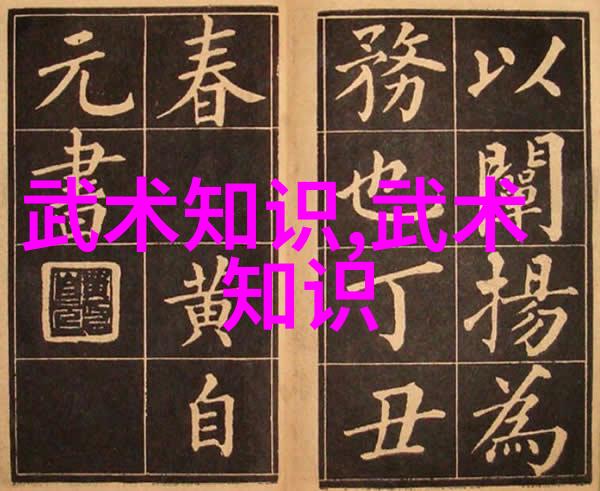 以闡揚為
務也丁丑
春黄自
元書
武术知识,武术
知识